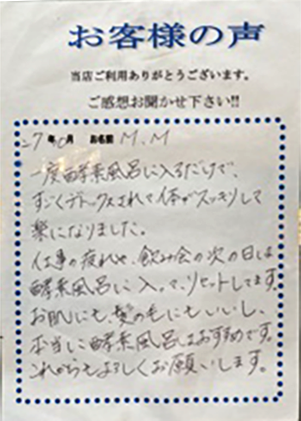 お客様の声
当店ご利用ありがとうございます。
ご感想お聞かせ下さい!!
27年10月 お名前 M.M
一度酵素風呂に入るだけで、
すごくデトックスされて体がスッキリして
楽になりました。
仕事の疲れや、飲み会の次の日は
酵素風呂に入って、リセットしてます。
お肌にも、髪の毛にもいいし、
本当に酵素風呂はおすすめです。
これからもよろしくお願いします。